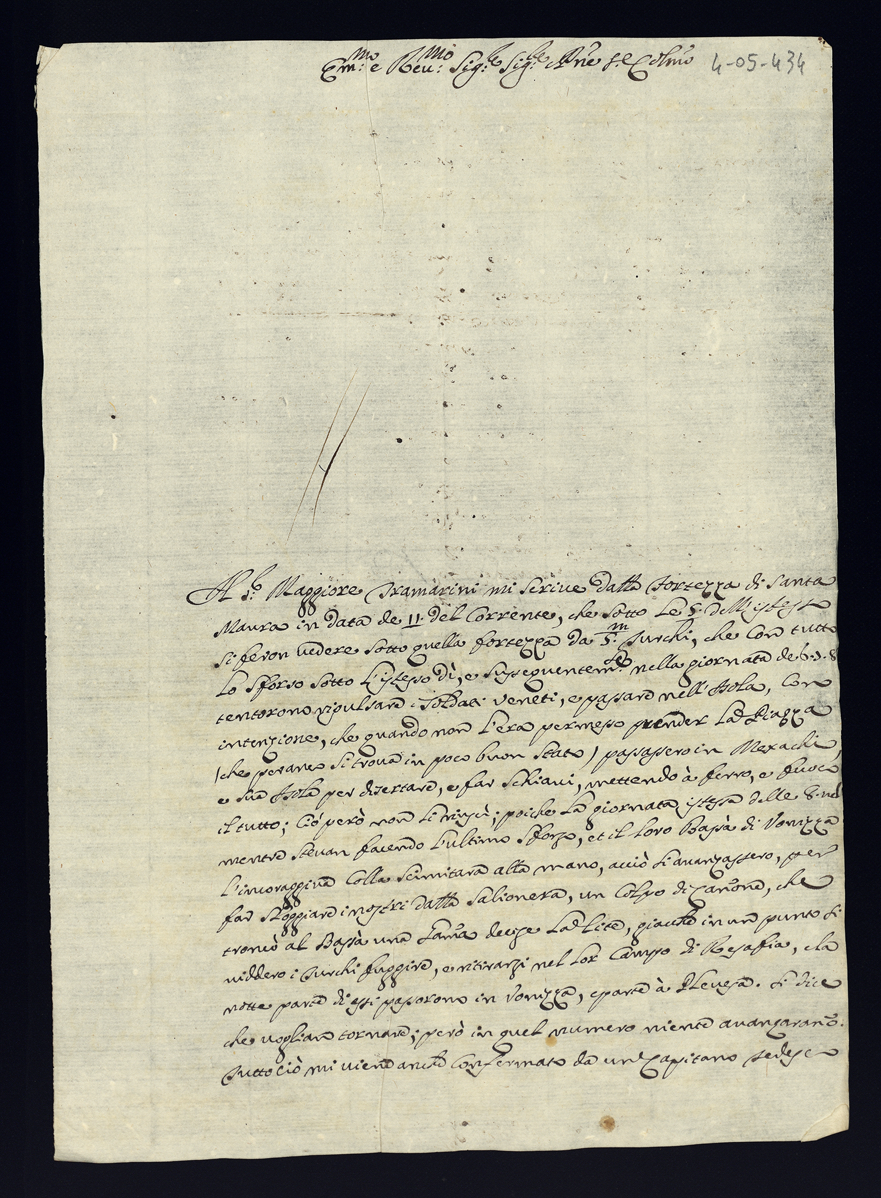 Em:mo e Reu:mo Sig:re Sig:re Pne e Colmo 4-05-434
Il Sr. Maggiore Tramarini mi scrive dalla Fortezza di Santa
Maura in data de 11 del Corrente, che sotto le 5 de
si feron vedere sotto quella fortezza da 5m Turchi, che con tutto
lo sforso sotto l'istesso dì, e susseguentemte nella giornata de 6.7.8
tentorono ripulsare i soldati veneti, e passare nell'Isola, con
intenzione, che quando non l'era permesso prender la Piazza
(che per ano si trova in poco buon stato) passassero in Mexachi,
e sua Isola per disertare, e far schiavi, mettendo à ferro, e fuoco
il tutto; Ciò però non li riuscì; poiche la giornata istessa delle 8.
mentre stevan facendo l'ultimo sforzo, et il loro Bassà di Vonizza
l'incoraggiva colla scimitara alla mano, acciò si avanzassero, per
far sloggiare i nostri dalla Salionera, un colpo di canone, che
troncò al Bassà una Gamba decise la lite, giache in un punto si
viddero i Turchi fuggire, e ritirarsi nel lor Campo di Resafia, e la
notte parte di essi passorono in Vonizza, e parte à Plevesa. Si dice
che vogliano tornare; però in quel numero niente avanzarano.
Tutto ciò mi viene anche confermato da un Capitano